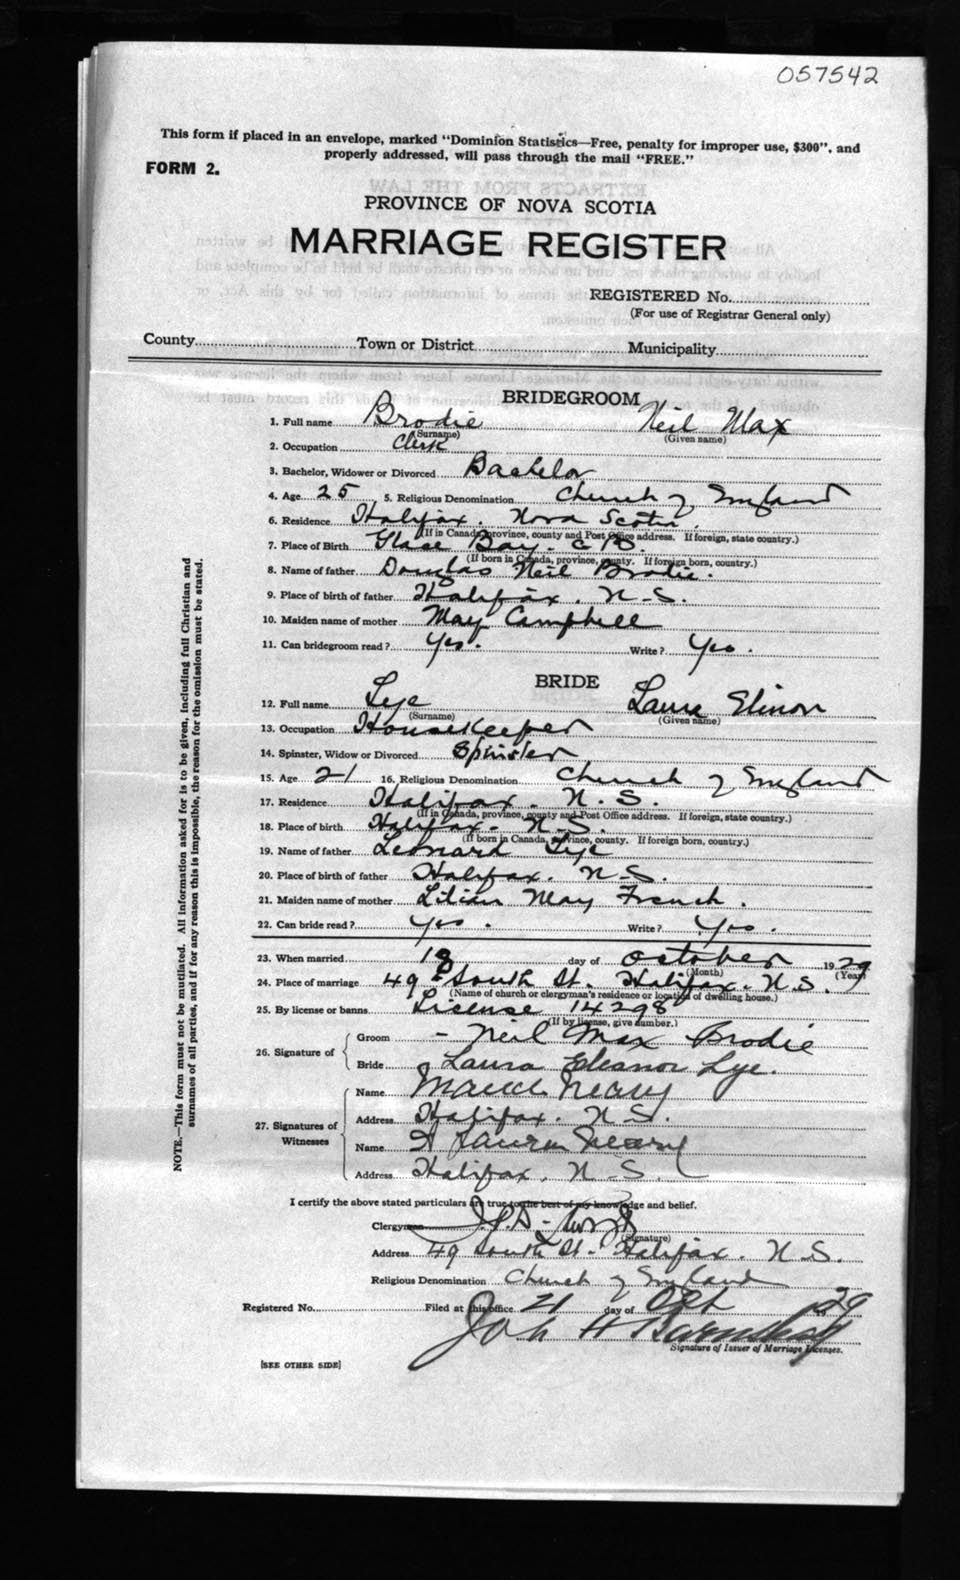 057542
This form if placed in an envelope, marked "Dominion Statistics—Free, penalty for improper use, $300", and
properly addressed, will pass through the mail "FREE."
FORM 2.
PROVINCE OF NOVA SCOTIA
MARRIAGE REGISTER
REGISTERED No.
(For use of Registrar General only)
County Town or District Municipality
BRIDEGROOM
1. Full name Brodie Neil Max
(Surname) (Given name)
2. Occupation Clerk
3. Bachelor, Widower or Divorced Bachelor
4. Age 25 5. Religious Denomination Church of England
6. Residence Halifax. Nova Scotia.
(If in Canada, province, county and Post Office address. If foreign, state country.)
7. Place of Birth Glace Bay. C.B.
(If born in Canada, province, county. If foreign born, country.)
8. Name of father Douglas Neil Brodie.
9. Place of birth of father Halifax. N.S.
10. Maiden name of mother May Campbell
11. Can bridegroom read? Yes. Write? Yes.
BRIDE
12. Full name Lye Laura Elinor
(Surname) (Given name)
13. Occupation Housekeeper
14. Spinster, Widow or Divorced Spinster
15. Age 21 16. Religious Denomination Church of England
17. Residence Halifax. N.S.
(If in Canada, province, county and Post Office address. If foreign, state country.)
18. Place of birth Halifax. N.S.
(If born in Canada, province, county. If foreign born, country.)
19. Name of father Leonard Lye
20. Place of birth of father Halifax. N.S.
21. Maiden name of mother Lilian May French.
22. Can bride read? Yes. Write? Yes.
23. When married day of October 1929
(Month) (Year)
24. Place of marriage 49 South St. Halifax. N.S.
(Name of church or clergyman's residence or location of dwelling house.)
25. By license or banns License 14298
(If by license, give number.)
26. Signature of Groom - Neil Max Brodie
Bride Laura Eleanor Lye.
27. Signatures of Witnesses Name
Address Halifax. N.S.
Name
Address Halifax. N.S.
I certify the above stated particulars are true to the best of my knowledge and belief.
Clergyman
(Signature)
Address 49 South St. Halifax. N.S.
Religious Denomination Church of England
Registered No. Filed at this office 21 day of Oct 1929
Signature of Issuer of Marriage Licenses.
[SEE OTHER SIDE]
NOTE.—This form must not be mutilated. All information asked for is to be given, including full Christian and
surnames of all parties, and if for any reason this is impossible, the reason for the omission must be stated.